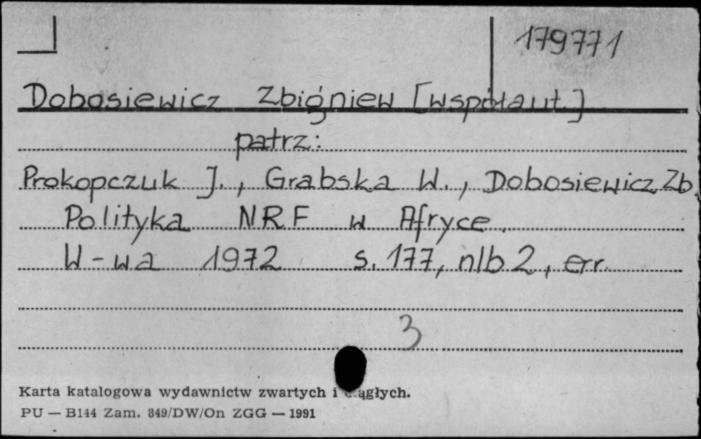 179771
Dobosiewicz Zbigniew [współaut.]
patrz:
Prokopczuk J., Grabska W., Dobosiewicz Zb.
Polityka NRF w Afryce.
W-wa 1972 s. 177, nlb 2, err.
3
Karta katalogowa wydawnictw zwartych i ciągłych.
PU — B144 Zam. 849/DW/On ZGG — 1991